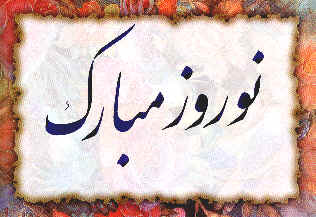 نوروز مبارک